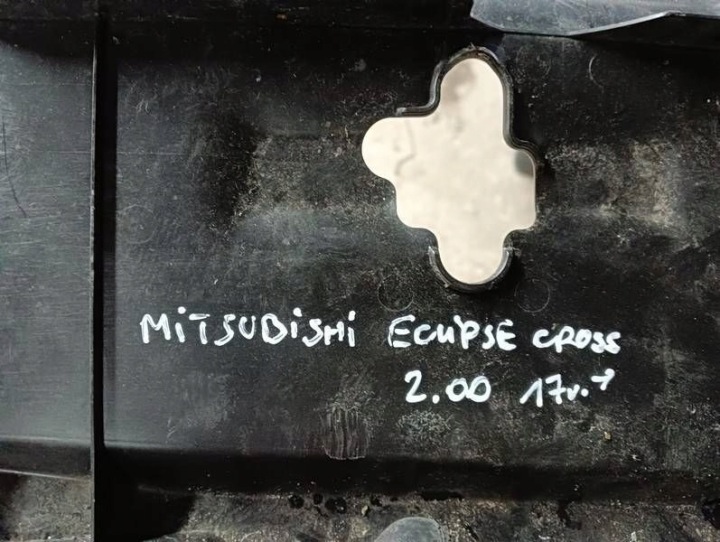 MiTSUBiSHi ECLIPSE CROSS
2.00 17r.→